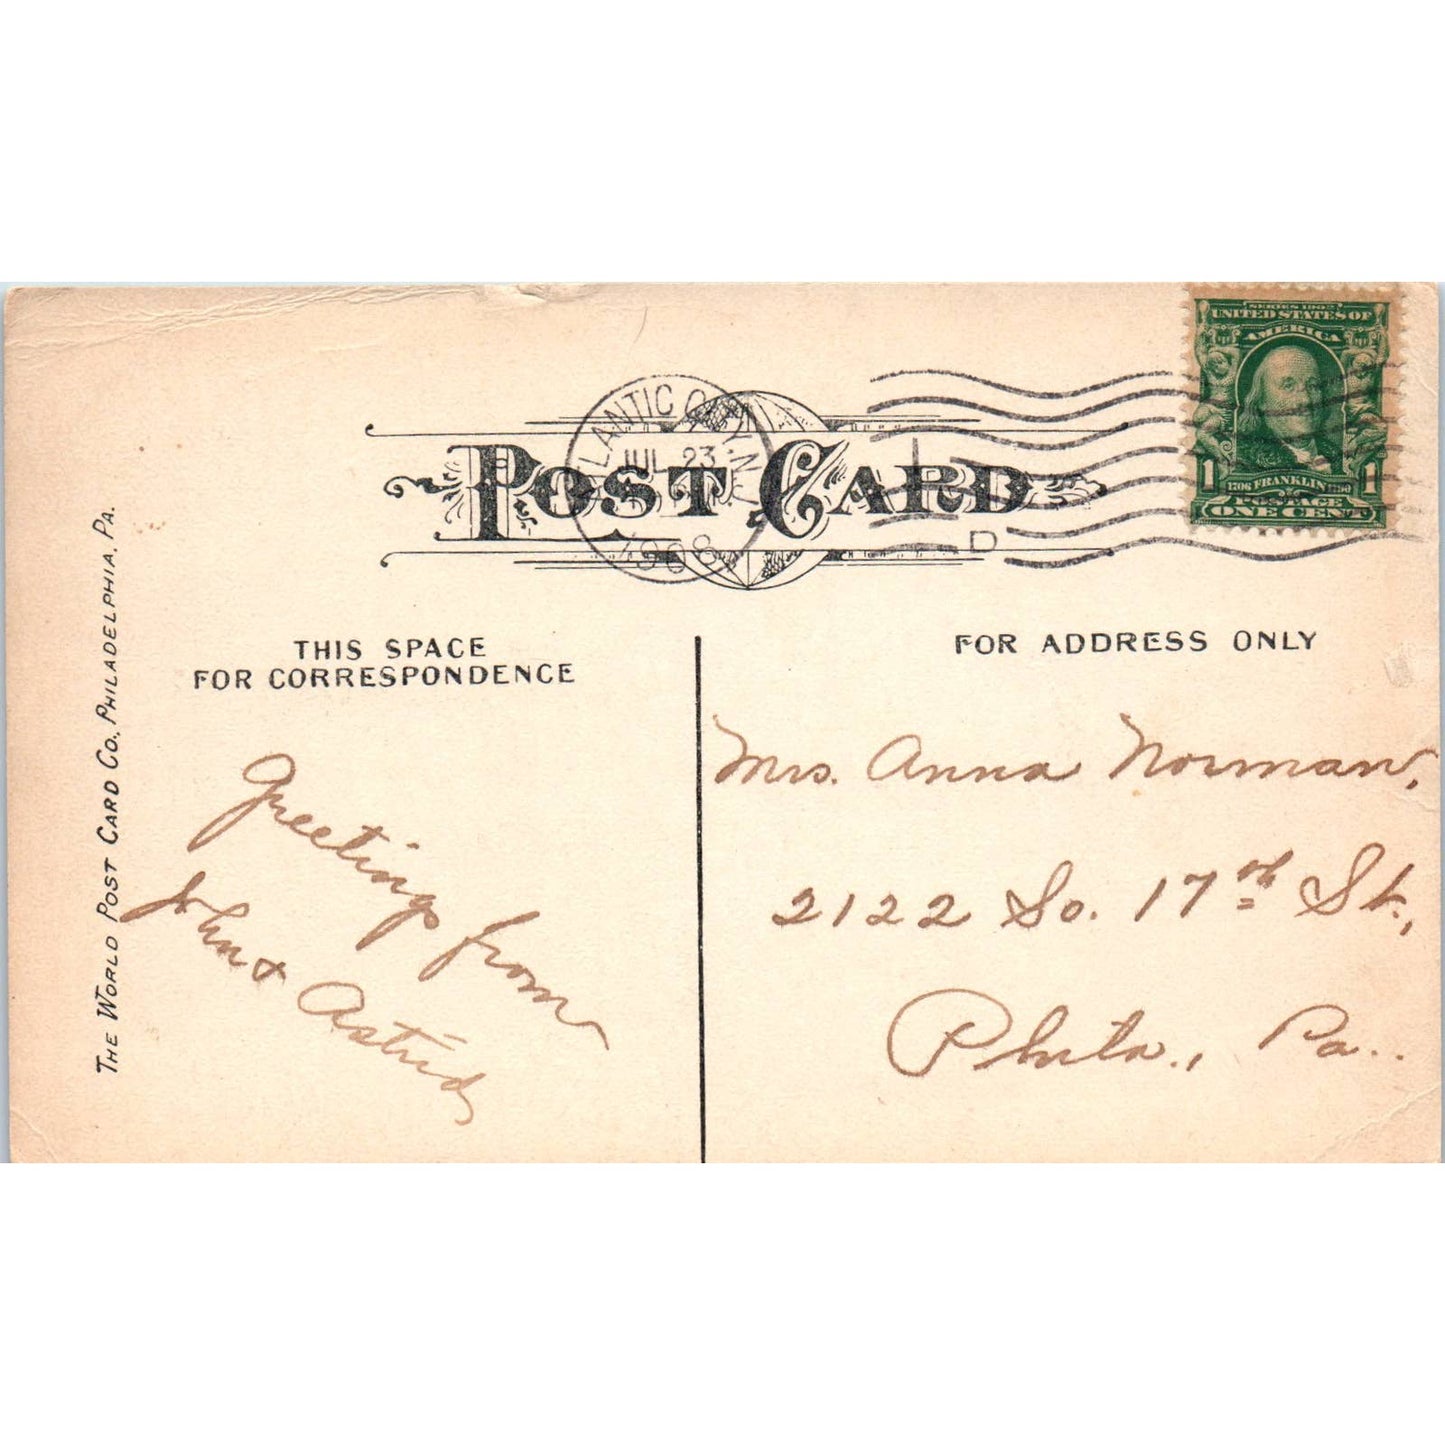 SERIES 1902
UNITED STATES OF
AMERICA
1706 FRANKLIN 1790
1 1
POSTAGE
ONE CENT
ATLANTIC CITY, N.J.
JUL 23
1908
D
POST CARD
THIS SPACE
FOR CORRESPONDENCE
FOR ADDRESS ONLY
Greetings from
John & Astrid
Mrs. Anna Norman,
2122 So. 17th St.,
Phila., Pa..
THE WORLD POST CARD CO., PHILADELPHIA, PA.